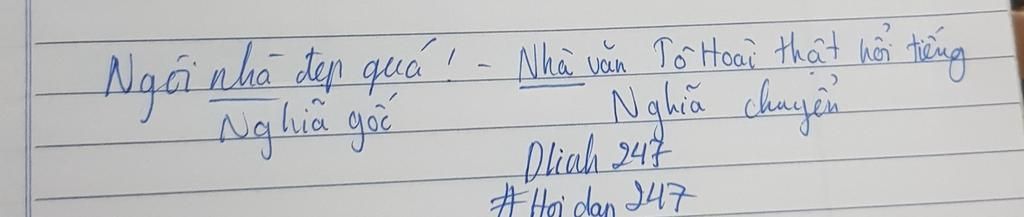 Ngôi nhà đẹp quá! - Nhà văn Tô Hoài thật nổi tiếng
Nghĩa gốc Nghĩa chuyển
Dlinh 247
#Hoi dan 247